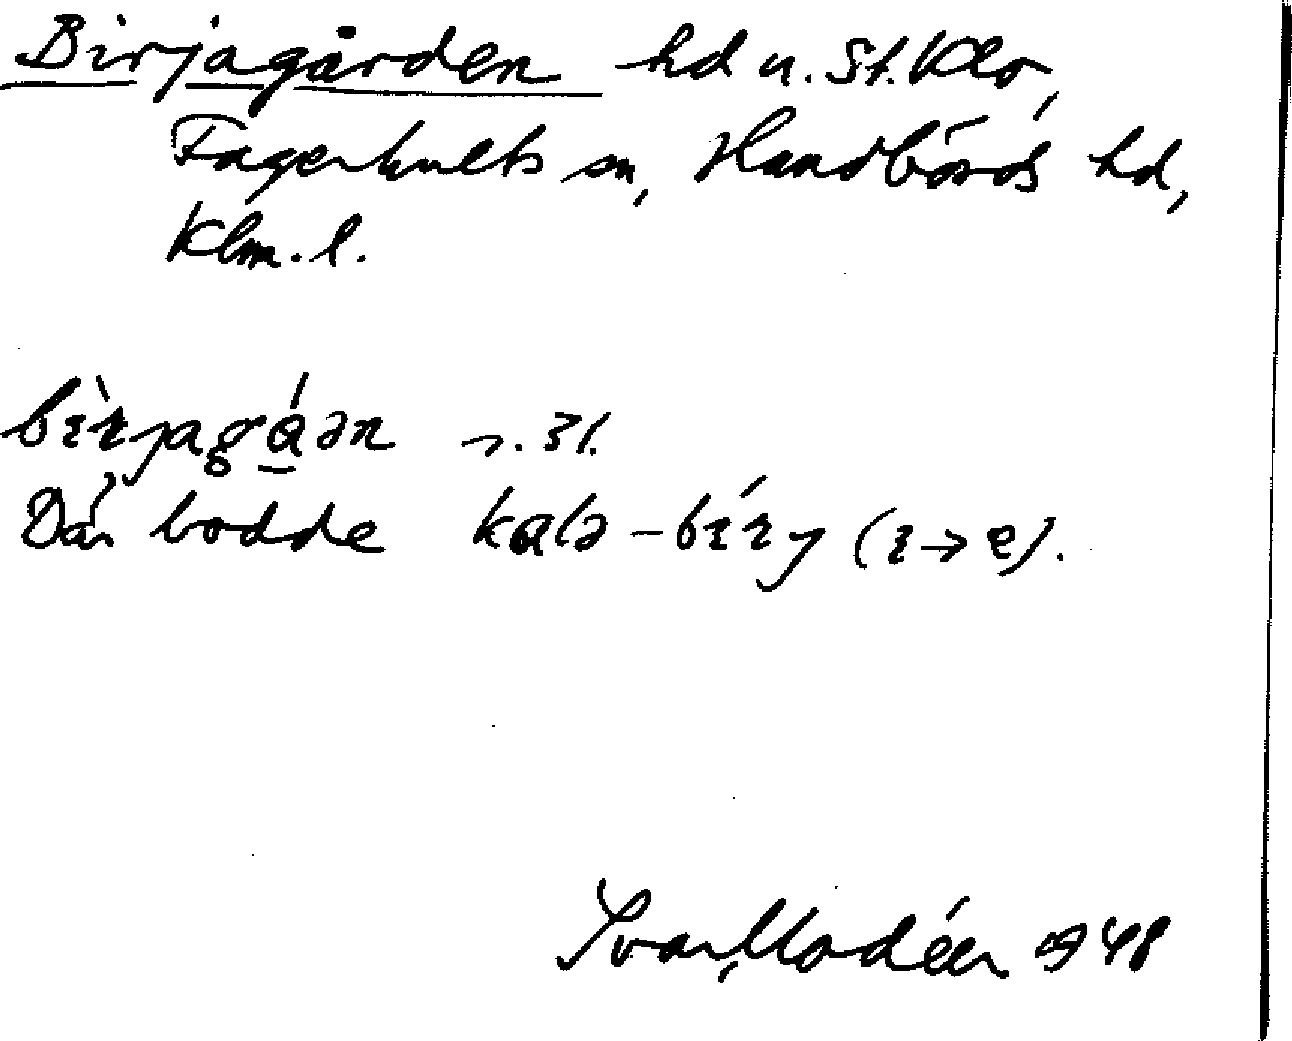 Birjagården hd u. St. Klo,
Fagerhults sn, Handbörds hd,
Klm. l.
bìrjagɑ́ən s. 31.
Där bodde kɑlə-bírj (ɪ→e).
Ivar Modéer 1948